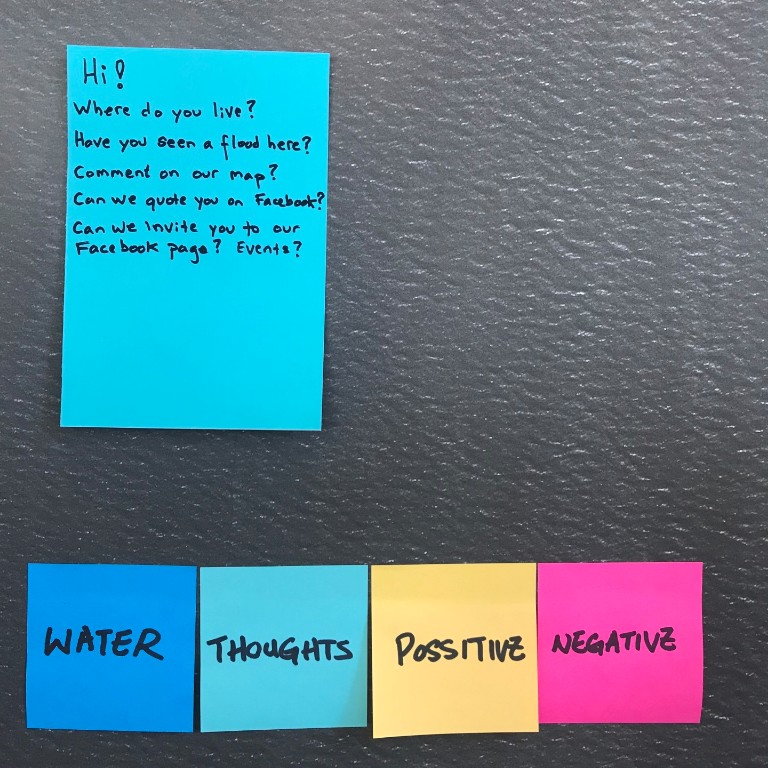 Hi!
Where do you live?
Have you seen a flood here?
Comment on our map?
Can we quote you on Facebook?
Can we invite you to our
Facebook page? Events?
WATER
THOUGHTS
POSSITIVE
NEGATIVE